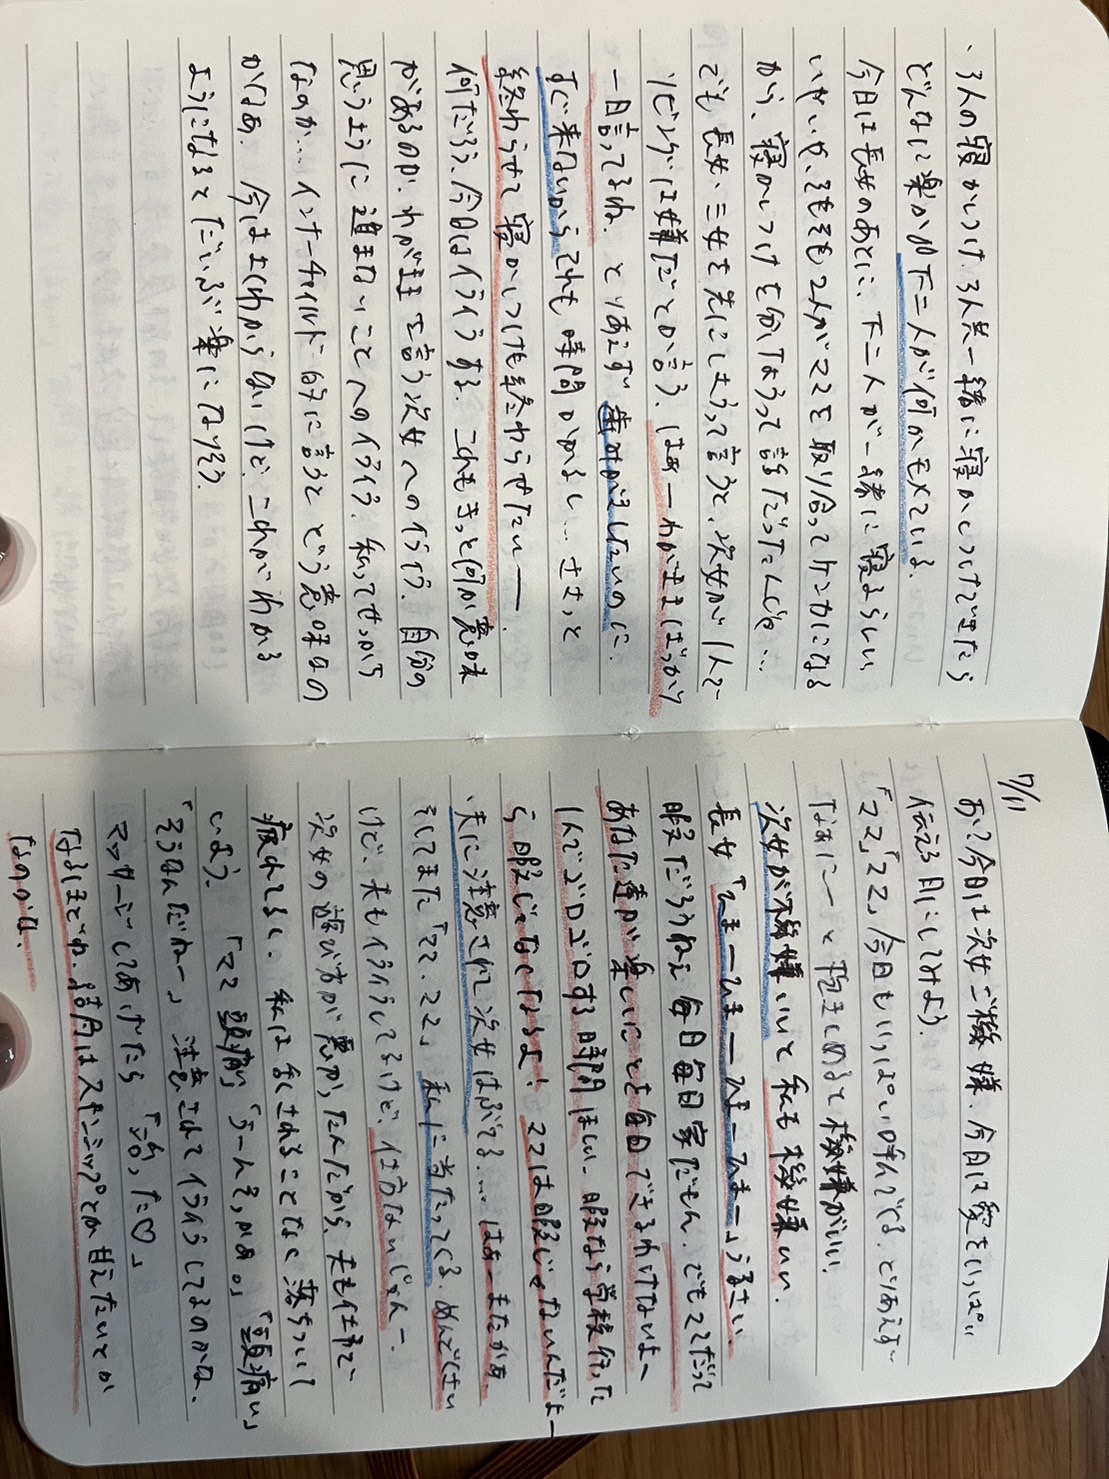 ・3人の寝かしつけ。3人共一緒に寝かしつけできたら
どんなに楽か。加下二人が何かモメている。
今日は長女のあとに、下二人が一緒に寝るらしい
いやいや、そもそも2人がママを取り合ってケンカになる
から、寝かしつけを分けようって話だったんじゃ…
でも長女、三女を先にしようって言うと、次女が1人で
リビングは嫌だとか言う。はぁーわがままばっかり
言ってるね。とりあえず歯みがきしたいのに、
すぐ来ないからそれも時間かかるし…ささっと
終わらせて寝かしつけも終わらせたいー
何だろう、今日はイライラする。これもきっと何か意味
があるのか。わがままを言う次女へのイライラ。自分の
思うように進まないことへのイライラ。私ってせっかち
なのか…インナーチャイルド的に言うとどう意味なの
かなぁ。今はよくわからないけど、これがわかる
ようになるとだいぶ楽になりそう。
7/11
お!?今日は次女ご機嫌。今日は愛をいっぱい
伝える日にしてみよう。
「ママ」「ママ」今日もいっぱい呼んでくる。とりあえず
なぁにーと抱きしめると機嫌がいい。
次女が機嫌いいと私も機嫌いい。
長女「ひまーひまーひまーひまー」うるさい
暇だろうねぇ毎日毎日家だもん。でもママだって
あなた達が楽しいことを毎日できるわけないよー
1人でゴロゴロする時間ほしい。暇なら学校行った
ら暇じゃなくなるよ!ママは暇じゃないんだよー
・夫に注意されて次女はふてる…はぁーまたかぁ。
そしてまた「ママ、ママ」私に当たってくる。めんどくさい
けど、夫もイライラしてるけど、仕方ないじゃんー
次女の遊び方が悪かったんだから、夫も仕事で
疲れてるし、私は流されることなく落ちついて
いよう。「ママ頭痛い」「うーんそっかぁ。」「頭痛い」
「そうなんだねー」注意されてイライラしてるのかな、
マッサージしてあげたら「治った♡」
なるほどね。結局はスキンシップとか甘えたいとか
なのかな。